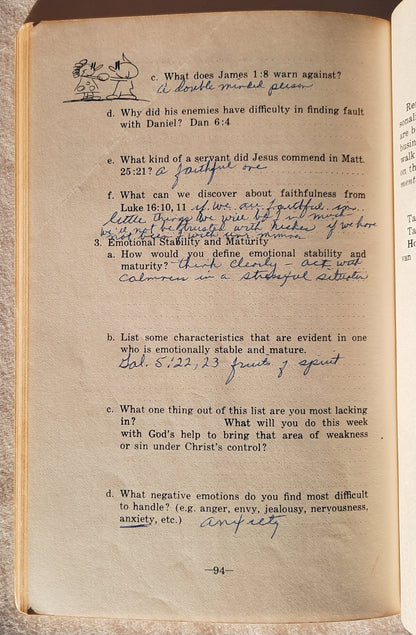 c. What does James 1:8 warn against?
A double minded person
d. Why did his enemies have difficulty in finding fault
with Daniel? Dan 6:4
e. What kind of a servant did Jesus commend in Matt.
25:21? A faithful one
f. What can we discover about faithfulness from
Luke 16:10, 11 if we are faithful in
little things we will be in much
we'll not be trusted with riches if we have
not been with
3. Emotional Stability and Maturity
a. How would you define emotional stability and
maturity? think clearly - act with
calmness in a stressful situation
b. List some characteristics that are evident in one
who is emotionally stable and mature.
Gal. 5:22, 23 fruits of spirit
c. What one thing out of this list are you most lacking
in? What will you do this week
with God's help to bring that area of weakness
or sin under Christ's control?
d. What negative emotions do you find most difficult
to handle? (e.g. anger, envy, jealousy, nervousness,
anxiety, etc.) anxiety
—94—
Re
are b
busin
walk
on th
T
Ta
Ho
van